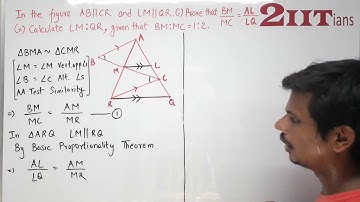 In the figure AB||CR and LM||QR. (i) Prove that BM/MC = AL/LQ
(ii) Calculate LM:QR, given that BM:MC = 1:2.
2IITians
ΔBMA ~ ΔCMR
[∠M = ∠M Vert.opp ∠s
∠B = ∠C Alt. ∠s
AA Test Similarity]
⇒ BM/MC = AM/MR — ①
In ΔARQ LM||RQ
By Basic Proportionality Theorem
⇒ AL/LQ = AM/MR
A
B
M
L
C
R
Q